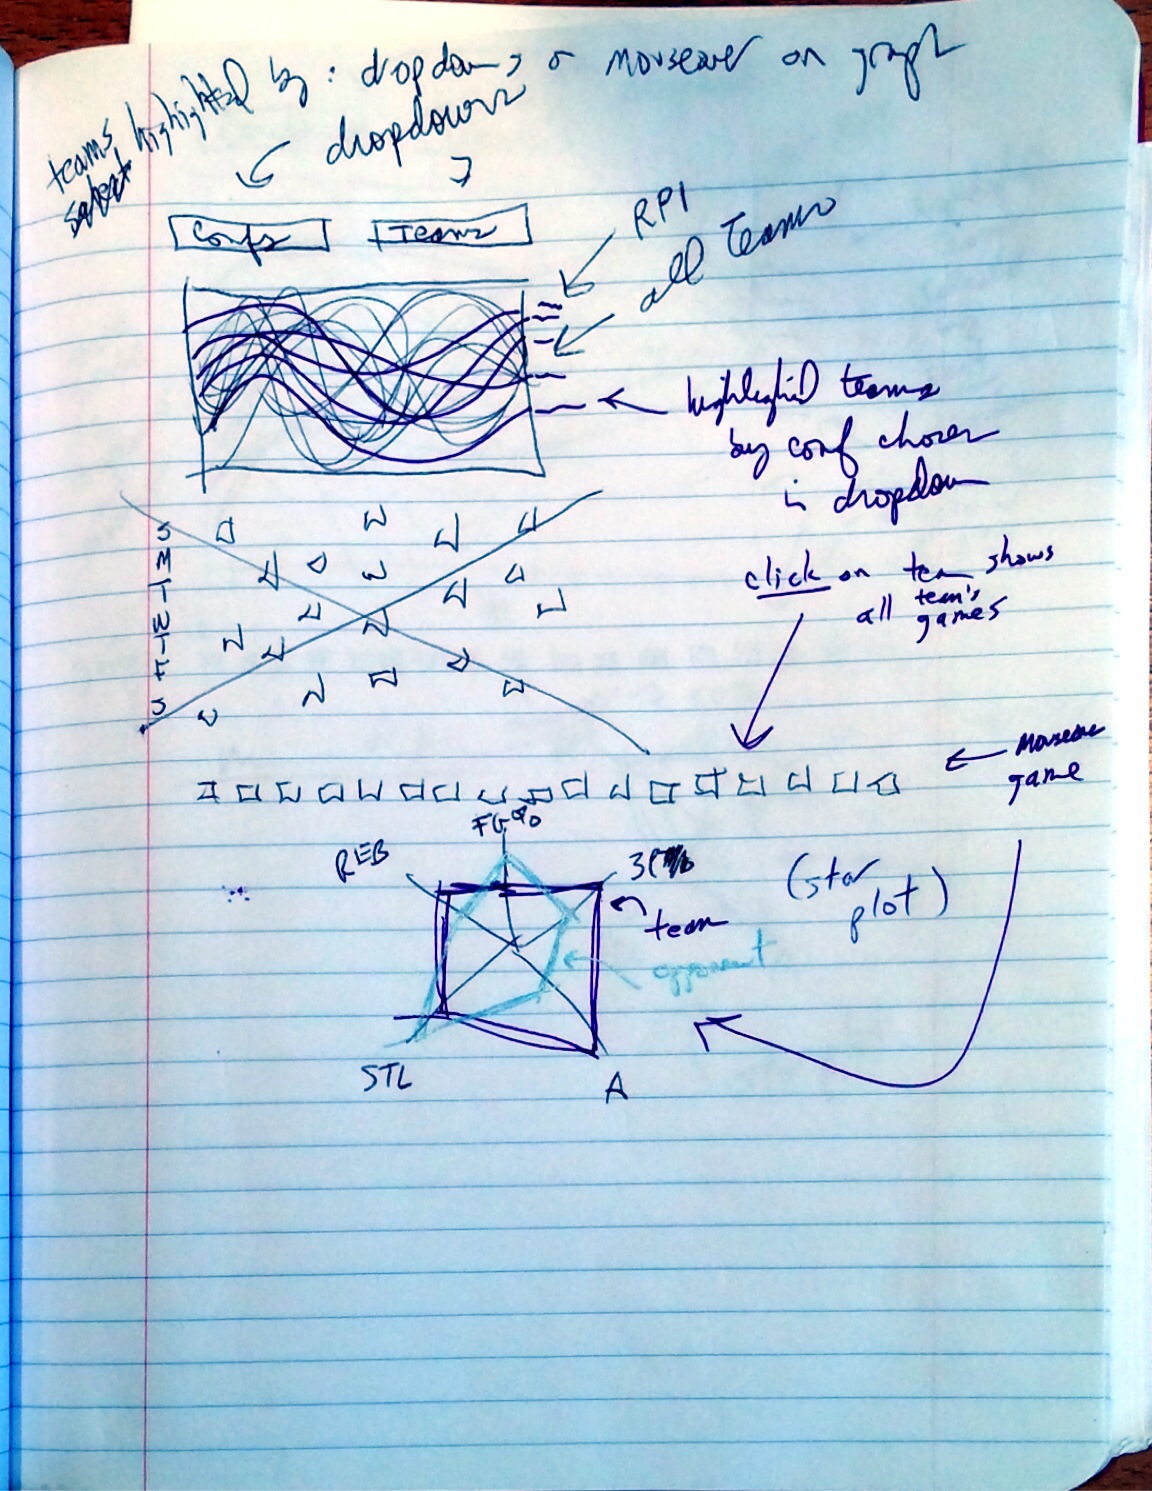 teams highlighted by: dropdowns or mouseover on graph
select
dropdowns
Confs
Teams
RPI
all teams
highlighted teams
by conf chosen
in dropdown
S
M
T
W
T
F
S
click on team shows
all team's
games
mouseover
game
FG%
REB
3P%
team
(star
plot)
opponent
STL
A